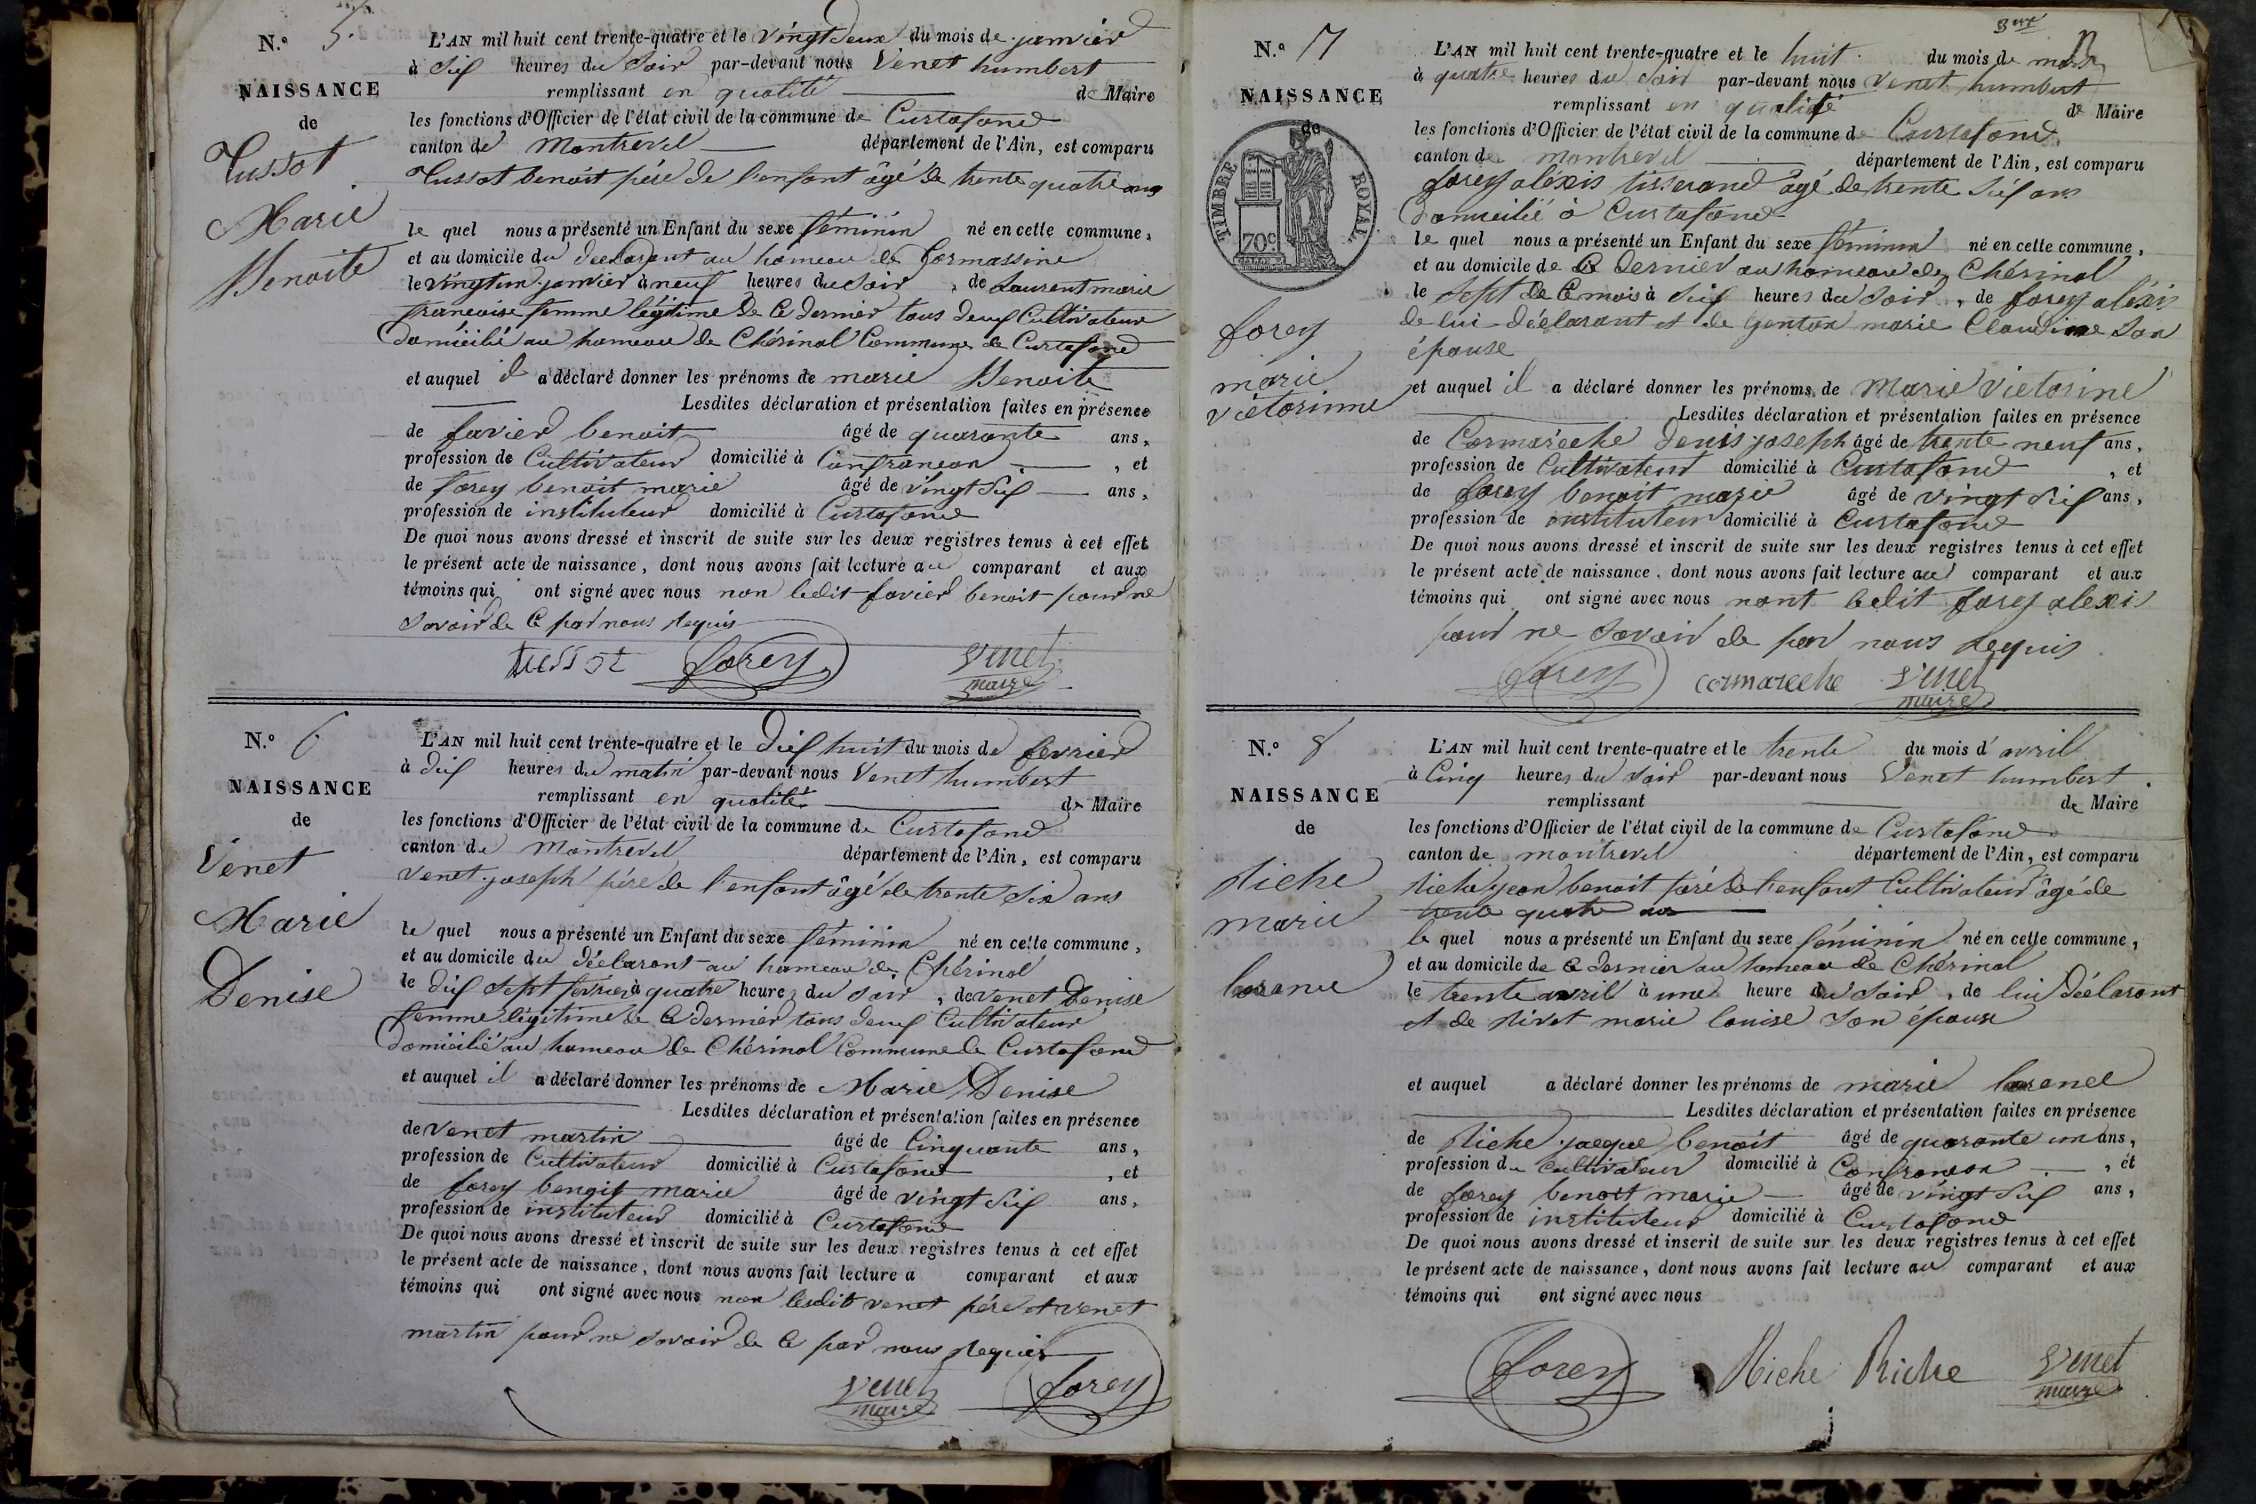 N.º 5.
NAISSANCE
de
Tussot
Marie
Benoite
L'AN mil huit cent trente-quatre et le vingt deux du mois de janvier
à six heures du soir par-devant nous Venet humbert
remplissant en qualité de Maire
les fonctions d'Officier de l'état civil de la commune de Curtafond
canton de Montrevel département de l'Ain, est comparu
Tussot benoit père de l'enfant âgé de trente quatre ans
le quel nous a présenté un Enfant du sexe féminin né en cette commune,
et au domicile du déclarant au hameau de
le vingt un janvier à neuf heures du soir, de Laurent marie
francoise femme légitime de ce dernier tous deux Cultivateur
domicilié au hameau de Chérinal Commune de Curtafond
et auquel il a déclaré donner les prénoms de marie Benoite
Lesdites déclaration et présentation faites en présence
de favier benoit âgé de quarante ans,
profession de Cultivateur domicilié à Confrancon, et
de forey benoit marie âgé de vingt six ans,
profession de instituteur domicilié à Curtafond
De quoi nous avons dressé et inscrit de suite sur les deux registres tenus à cet effet
le présent acte de naissance, dont nous avons fait lecture au comparant et aux
témoins qui ont signé avec nous non ledit favier benoit pour ne
savoir de ce par nous requis
tussot forey venet
maire
N.º 6
NAISSANCE
de
Venet
Marie
Denise
L'AN mil huit cent trente-quatre et le dix huit du mois de fevrier
à dix heures du matin par-devant nous Venet humbert
remplissant en qualité de Maire
les fonctions d'Officier de l'état civil de la commune de Curtafond
canton de Montrevel département de l'Ain, est comparu
Venet joseph père de l'enfant âgé de trente six ans
le quel nous a présenté un Enfant du sexe féminin né en cette commune,
et au domicile du déclarant au hameau de Chérinal
le dix sept fevrier à quatre heures du soir, de venet Denise
femme légitime de ce dernier tous deux Cultivateur
domicilié au hameau de Chérinal Commune de Curtafond
et auquel il a déclaré donner les prénoms de Marie Denise
Lesdites déclaration et présentation faites en présence
de venet martin âgé de Cinquante ans,
profession de Cultivateur domicilié à Curtafond, et
de forey benoit marie âgé de vingt six ans,
profession de instituteur domicilié à Curtafond
De quoi nous avons dressé et inscrit de suite sur les deux registres tenus à cet effet
le présent acte de naissance, dont nous avons fait lecture a comparant et aux
témoins qui ont signé avec nous non lesdits venet père et venet
martin pour ne savoir de ce par nous requis
venet forey
maire
N.º 7
NAISSANCE
de
TIMBRE ROYAL
70c
forey
marie
victorinne
L'AN mil huit cent trente-quatre et le huit du mois de mars
à quatre heures du soir par-devant nous venet humbert
remplissant en qualité de Maire
les fonctions d'Officier de l'état civil de la commune de Curtafond
canton de montrevel département de l'Ain, est comparu
forey aléxis tisserand âgé de trente six ans
domicilié à Curtafond
le quel nous a présenté un Enfant du sexe féminin né en cette commune,
et au domicile de ce dernier au hameau de Chérinal
le sept de ce mois à six heures du soir, de forey aléxis
de lui déclarant et de Genton marie Claudine son
épouse
et auquel il a déclaré donner les prénoms de Marie Victorine
Lesdites déclaration et présentation faites en présence
de Cormareche denis joseph âgé de trente neuf ans,
profession de Cultivateur domicilié à Curtafond, et
de forey benoit marie âgé de vingt six ans,
profession de instituteur domicilié à Curtafond
De quoi nous avons dressé et inscrit de suite sur les deux registres tenus à cet effet
le présent acte de naissance, dont nous avons fait lecture au comparant et aux
témoins qui ont signé avec nous nont ledit forey alexis
pour ne savoir de par nous requis
forey cormareche venet
maire
N.º 8
NAISSANCE
de
Riche
marie
L'AN mil huit cent trente-quatre et le trente du mois d'avril
à Cinq heures du soir par-devant nous Venet humbert
remplissant de Maire
les fonctions d'Officier de l'état civil de la commune de Curtafond
canton de montrevel département de l'Ain, est comparu
Riche jean benoit père de l'enfant Cultivateur âgé de
trente quatre ans
le quel nous a présenté un Enfant du sexe féminin né en cette commune,
et au domicile de ce dernier au hameau de Chérinal
le trente avril à une heure du soir, de lui déclarant
et de Rivot marie louise son épouse
et auquel a déclaré donner les prénoms de marie
Lesdites déclaration et présentation faites en présence
de Riche jacque benoit âgé de quarante un ans,
profession de cultivateur domicilié à Confrancon, et
de forey benoit marie âgé de vingt six ans,
profession de instituteur domicilié à Curtafond
De quoi nous avons dressé et inscrit de suite sur les deux registres tenus à cet effet
le présent acte de naissance, dont nous avons fait lecture au comparant et aux
témoins qui ont signé avec nous
forey Riche Riche venet
maire